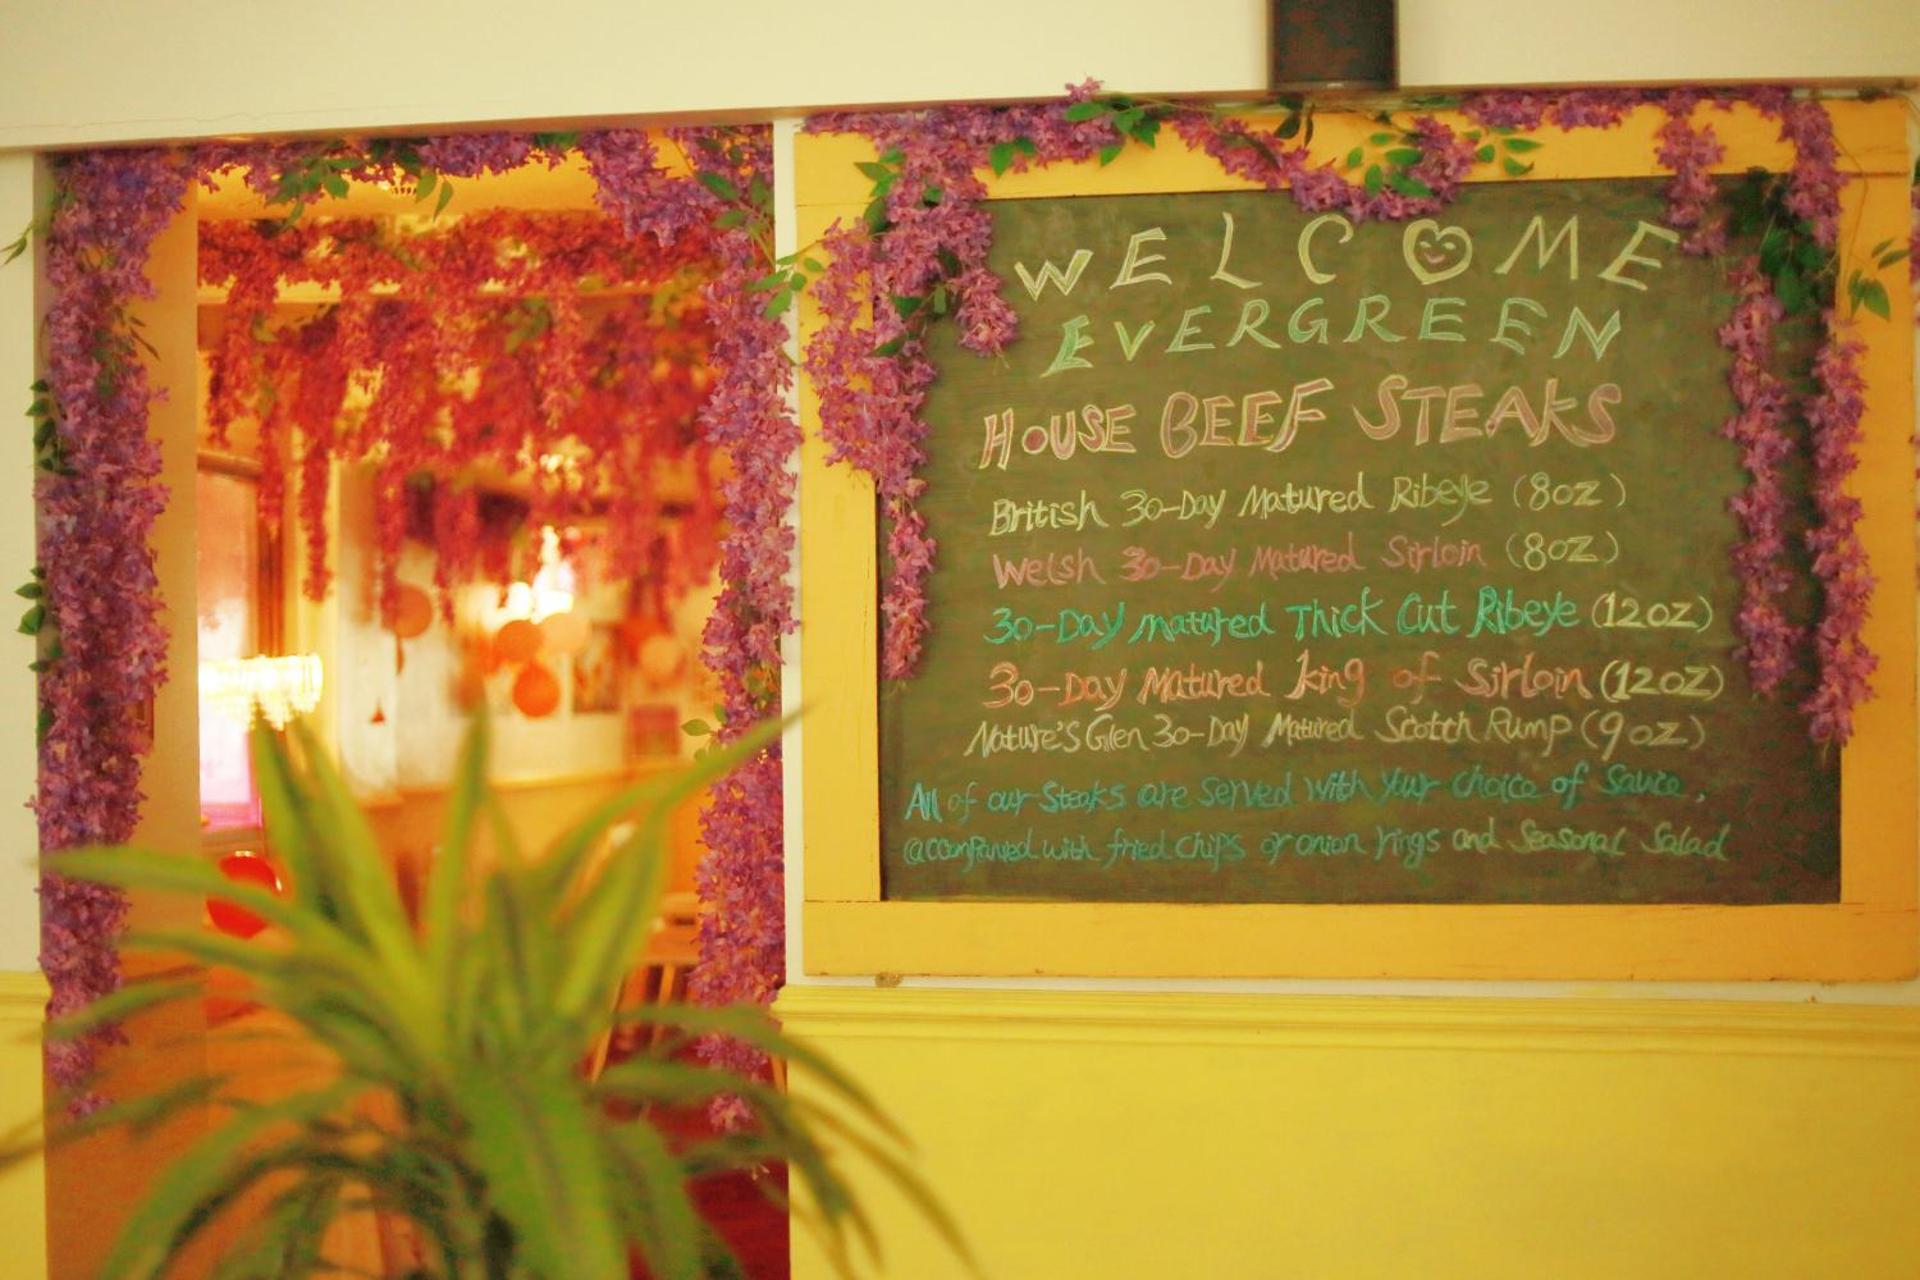 WELCOME
EVERGREEN
HOUSE BEEF STEAKS
British 30-Day Matured Ribeye (8oz)
Welsh 30-Day Matured Sirloin (8oz)
30-Day matured Thick Cut Ribeye (12oz)
30-Day Matured king of Sirloin (12oz)
Nature's Glen 30-Day Matured Scotch Rump (9oz)
All of our Steaks are Served with your choice of Sauce,
accompanied with fried chips or onion rings and Seasonal Salad